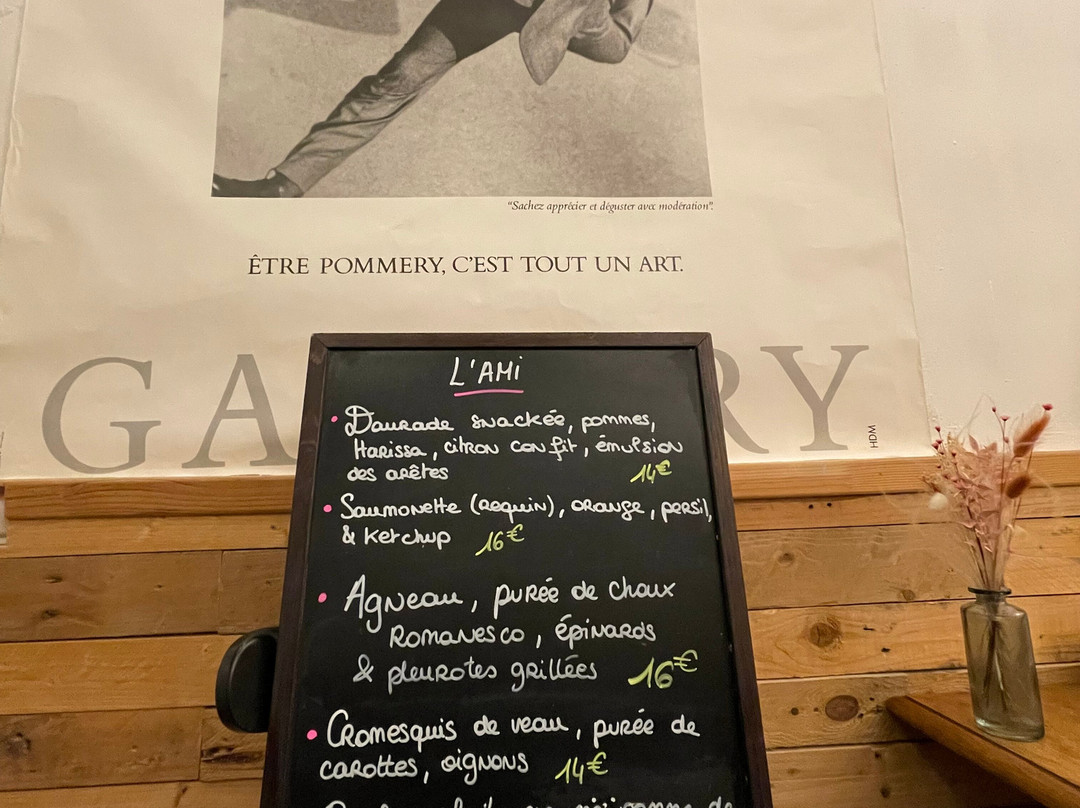 "Sachez apprécier et déguster avec modération".
ÊTRE POMMERY, C'EST TOUT UN ART.
GA RY
HDM
L'AMi
• Daurade snackée, pommes,
Harissa, citron confit, émulsion
des arêtes 14€
• Saumonette (requin), orange, persil,
& ketchup 16€
• Agneau, purée de choux
Romanesco, épinards
& pleurotes grillées 16€
• Cromesquis de veau, purée de
carottes, oignons 14€
de